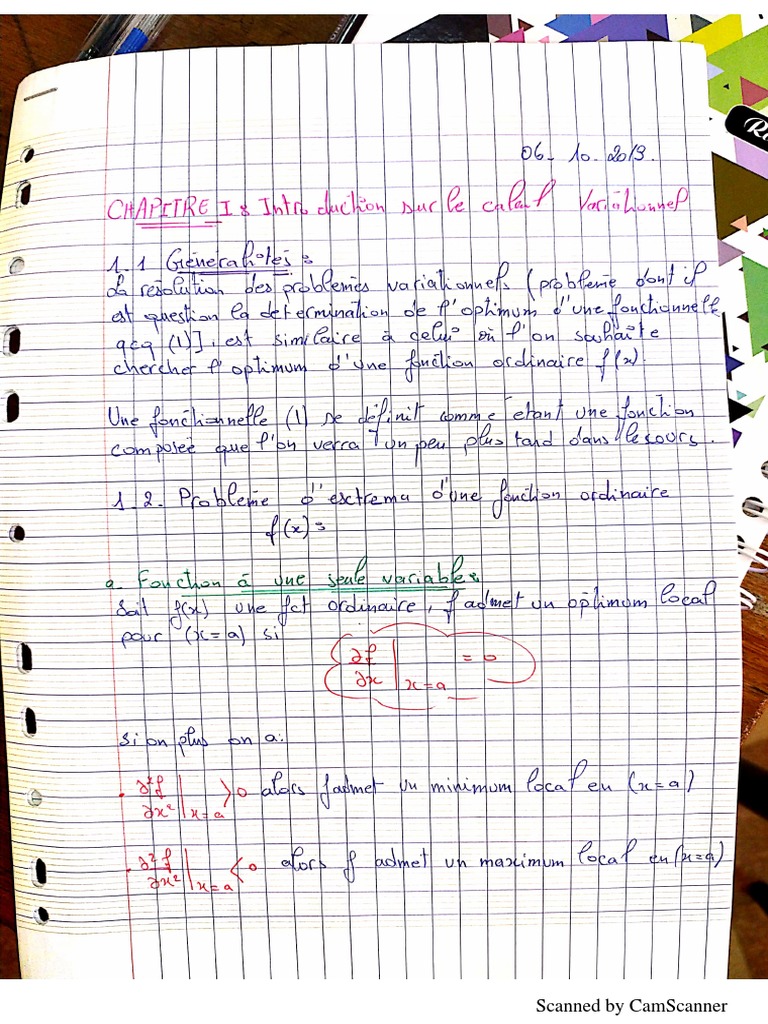 06-10-2013.
CHAPITRE I : Introduction sur le calcul Variationnel
1.1 Généralités :
La résolution des problèmes variationnels (problème dont il
est question la determination de l'optimum d'une fonctionnelle
qcq (I)], est similaire à celui où l'on souhaite
chercher l'optimum d'une fonction ordinaire f(x).
Une fonctionnelle (I) se définit comme étant une fonction
composée que l'on verra un peu plus tard dans le cours.
1.2. Problème d'extrema d'une fonction ordinaire
f(x) :
a. Fonction à une seule variable :
Soit f(x) une fct ordinaire, f admet un optimum local
pour (x=a) si
∂f/∂x |x=a = 0
Si on plus on a :
• ∂²f/∂x² |x=a >0 alors f admet un minimum local en (x=a)
• ∂²f/∂x² |x=a <0 alors f admet un maximum local en (x=a)
Scanned by CamScanner